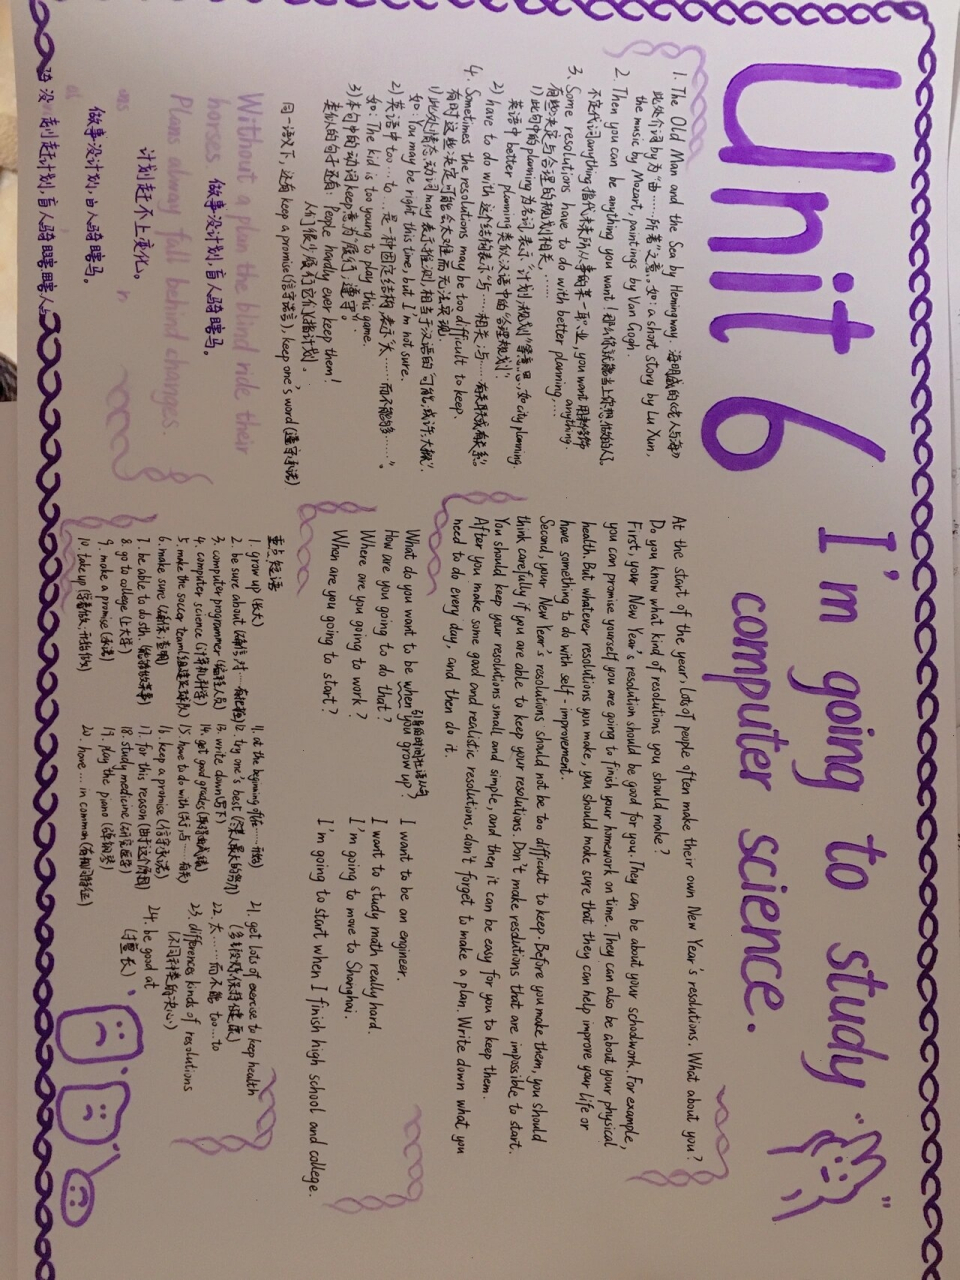 Unit 6
I'm going to study
computer science.
1. The Old Man and the Sea by Hemingway. 海明威的《老人与海》
此处介词by为"由……所著"之意。如: a short story by Lu Xun,
the music by Mozart, paintings by Van Gogh.
2. Then you can be anything you want! 那么你就能当上你想做的人。
不定代词anything指代未来所从事的某一职业, you want anything.
3. Some resolutions have to do with better planning……
有些决定与合理的规划相关……
1) 此句中的planning为名词,表示"计划;规划"等意思,如city planning.
英语中better planning类似汉语中的"合理规划".
2) have to do with 这个结构表示"与……相关;与……有关联或有关系".
4. Sometimes the resolutions may be too difficult to keep.
有时这些决定可能会太难而无法实现.
1) 此处情态动词may表示推测,相当于汉语的"可能;或许;大概".
如: You may be right this time, but I'm not sure.
2) 英语中too…to…是一种固定结构,表示"太……而不能够……"。
如: The kid is too young to play this game.
3) 本句中的动词keep意为"履行;遵守".
类似的句子还有: People hardly ever keep them!
人们很少履行它们(指计划)。
同一语义下,还有keep a promise(信守诺言), keep one's word(遵守承诺)
Without a plan the blind ride their
horses. 做事没计划,盲人骑瞎马。
Plans always fall behind changes.
计划赶不上变化。
做事没计划,盲人骑瞎马。
At the start of the year, lots of people often make their own New Year's resolutions. What about you?
Do you know what kind of resolutions you should make?
First, your New Year's resolution should be good for you. They can be about your schoolwork. For example,
you can promise yourself you are going to finish your homework on time. They can also be about your physical
health. But whatever resolutions you make, you should make sure that they can help improve your life or
have something to do with self-improvement.
Second, your New Year's resolutions should not be too difficult to keep. Before you make them, you should
think carefully if you are able to keep your resolutions. Don't make resolutions that are impossible to start.
You should keep your resolutions small and simple, and then it can be easy for you to keep them.
After you make some good and realistic resolutions, don't forget to make a plan. Write down what you
need to do every day, and then do it.
引导时间状语从句
What do you want to be when you grow up? I want to be an engineer.
How are you going to do that? I want to study math really hard.
Where are you going to work? I'm going to move to Shanghai.
When are you going to start? I'm going to start when I finish high school and college.
重点短语
1. grow up (长大)
2. be sure about
3. computer programmer (编程人员)
4. computer science (计算机科学)
5. make the soccer team (组建足球队)
6. make sure
7. be able to do sth.
8. go to college (上大学)
9. make a promise (承诺)
10. take up
11. at the beginning of
12. try one's best (尽某人最大的努力)
13. write down (写下)
14. get good grades (取得好成绩)
15. have to do with
16. keep a promise (信守承诺)
17. for this reason (由于这个原因)
18. study medicine (研究医学)
19. play the piano (弹钢琴)
20. have… in common
21. get lots of exercise to keep health
22. 太……而不能 too…to
23. differences kinds of resolutions
(不同种类的决心)
24. be good at
(擅长)